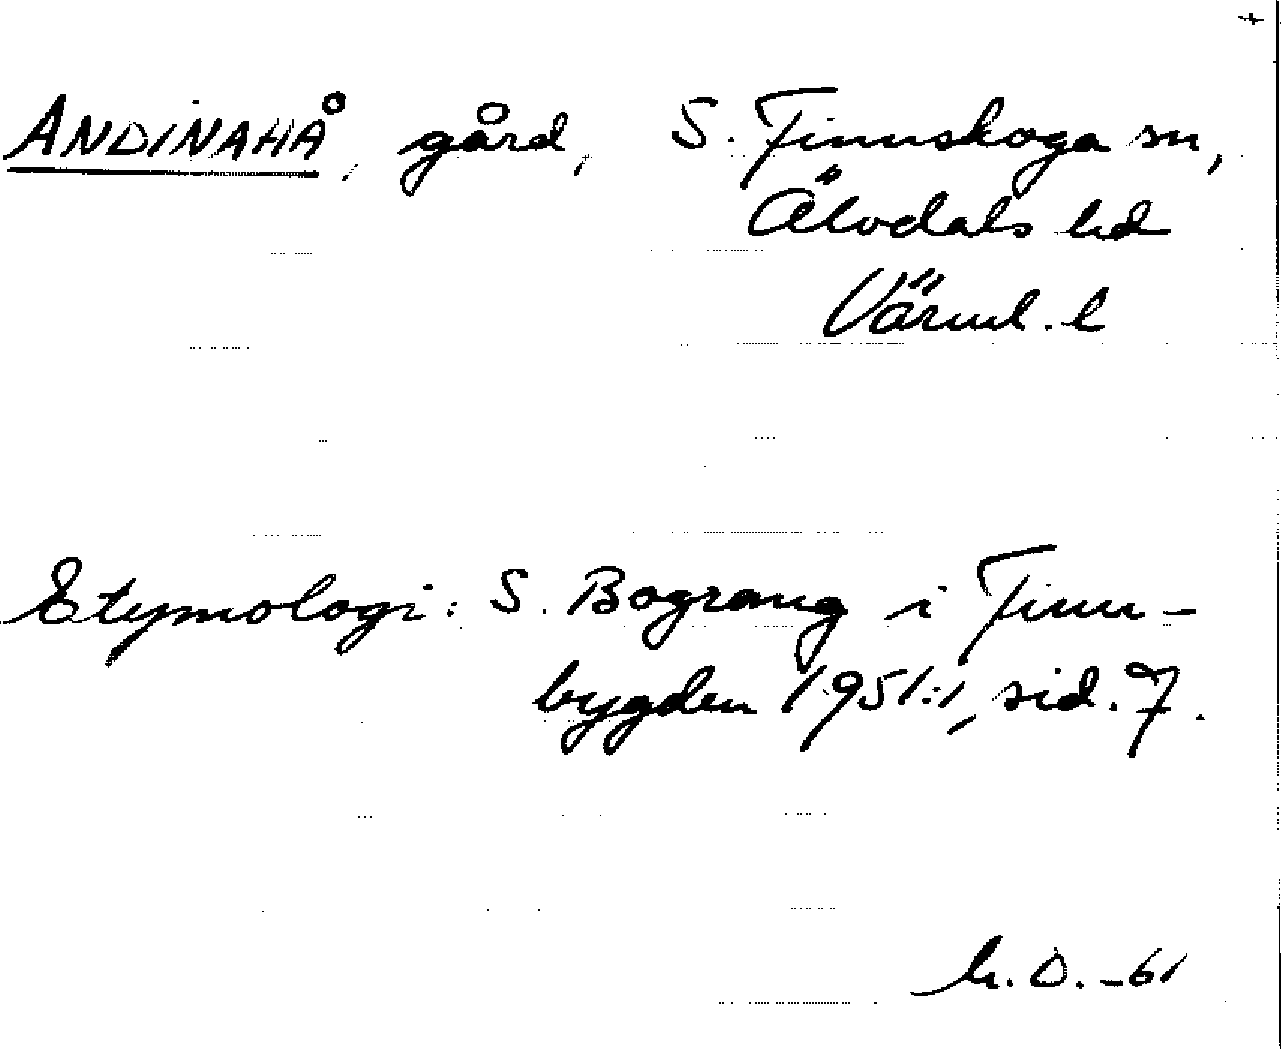 ANDINAHÅ, gård, S. Finnskoga sn,
Älvdals hd
Värml. l
Etymologi: S. Bograng i Finn-
bygden 1951:1, sid. 7.
D. -61